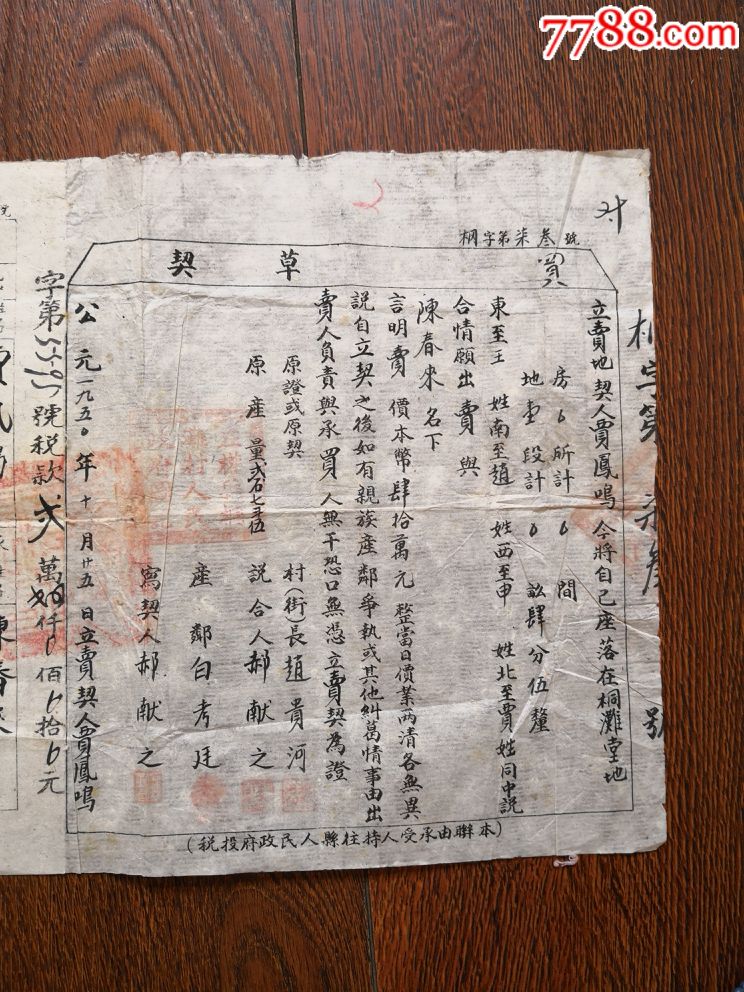 7788.com
才
桐字第柒叁號
買
草契
桐字第 柒叁 號
立賣地契人賈鳳鳴今將自己座落在桐灘堂地
房 0 所計 0 間
地壹段計 0 畝肆分伍釐
東至王 姓南至趙 姓西至申 姓北至賈姓同中説
合情願出賣與
陳春來名下
言明賣價本幣肆拾萬元整當日價業两清各無異
説自立契之後如有親族產鄰爭執或其他糾葛情事由出
賣人負責與承買人無干恐口無憑立賣契為證
原證或原契
原產量弍石七斗伍
村(街)長趙貴河
説合人郝献之
產鄰白考廷
寫契人郝献之
公元一九五〇年十月廿五日立賣契人賈鳳鳴
字第 號税款弍萬 仟0佰0拾0元
(本聯由承受人持往縣人民政府投税)